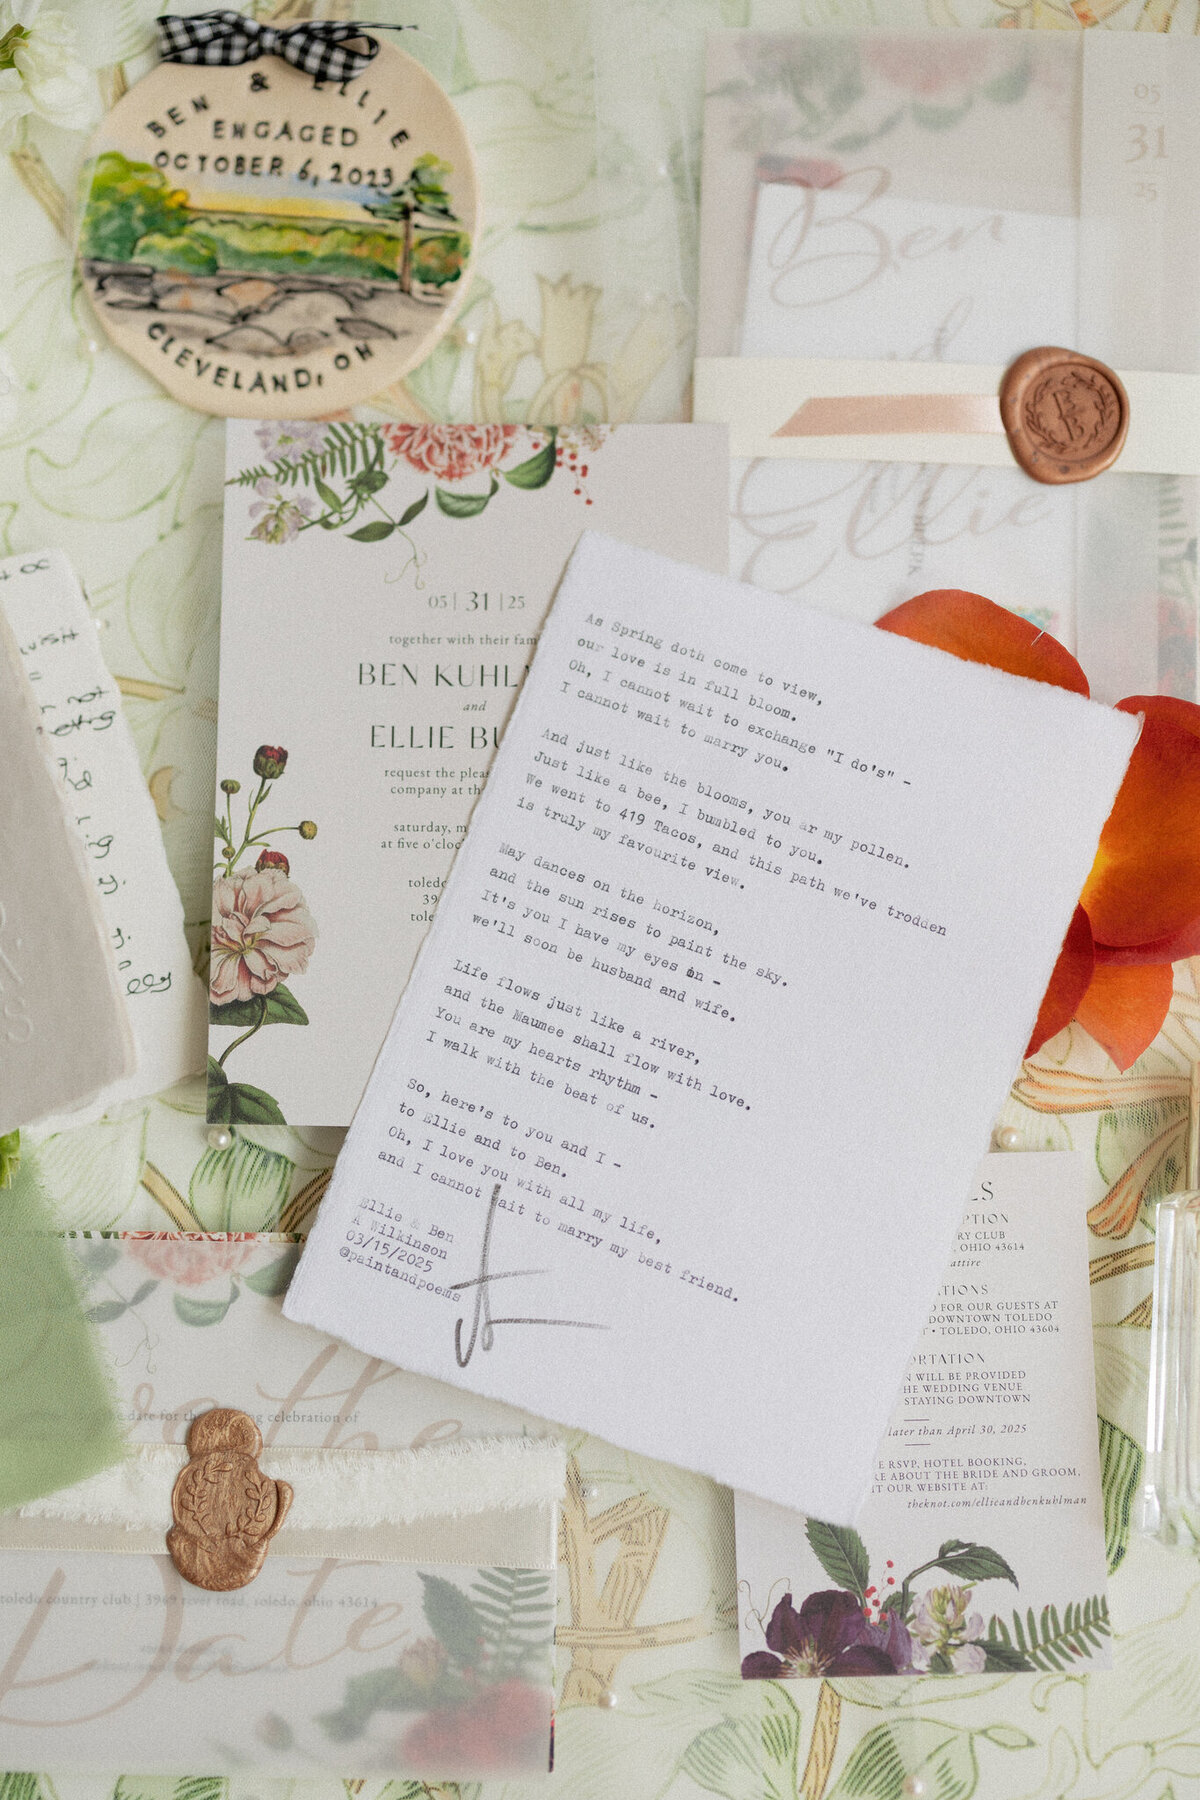 BEN & ELLIE
ENGAGED
OCTOBER 6, 2023
CLEVELAND, OH
05
31
25
Ben
Ellie
05 | 31 | 25
together with their fam
BEN KUHLM
and
ELLIE BU
request the pleas
company at th
saturday, m
at five o'cloc
toledo
39
tole
As Spring doth come to view,
our love is in full bloom.
Oh, I cannot wait to exchange "I do's" -
I cannot wait to marry you.
And just like the blooms, you ar my pollen.
Just like a bee, I bumbled to you.
We went to 419 Tacos, and this path we've trodden
is truly my favourite view.
May dances on the horizon,
and the sun rises to paint the sky.
It's you I have my eyes on -
we'll soon be husband and wife.
Life flows just like a river,
and the Maumee shall flow with love.
You are my hearts rhythm -
I walk with the beat of us.
So, here's to you and I -
to Ellie and to Ben.
Oh, I love you with all my life,
and I cannot wait to marry my best friend.
Ellie & Ben
A Wilkinson
03/15/2025
@paintandpoems
LS
PTION
RY CLUB
, OHIO 43614
attire
TIONS
D FOR OUR GUESTS AT
DOWNTOWN TOLEDO
T • TOLEDO, OHIO 43604
ORTATION
N WILL BE PROVIDED
HE WEDDING VENUE
STAYING DOWNTOWN
later than April 30, 2025
E RSVP, HOTEL BOOKING,
RE ABOUT THE BRIDE AND GROOM,
IT OUR WEBSITE AT:
theknot.com/ellieandbenkuhlman
the
e date for the
celebration of
Date
toledo country club | 3949 river road, toledo, ohio 43614